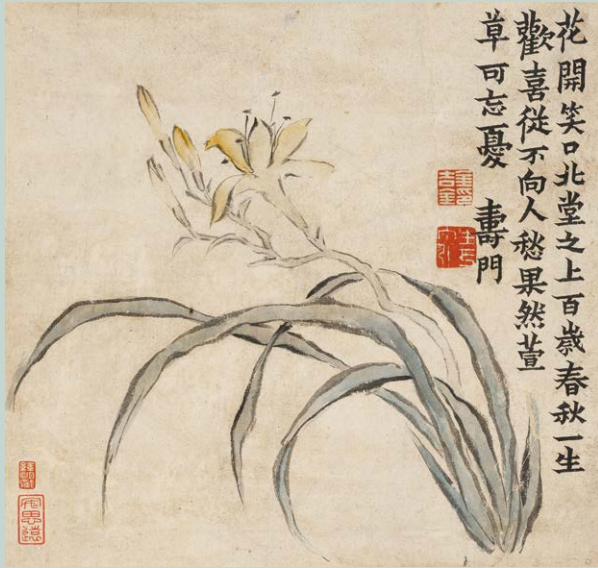 花開笑口北堂之上百歲春秋一生
歡喜從不向人愁果然萱
草可忘憂 壽門